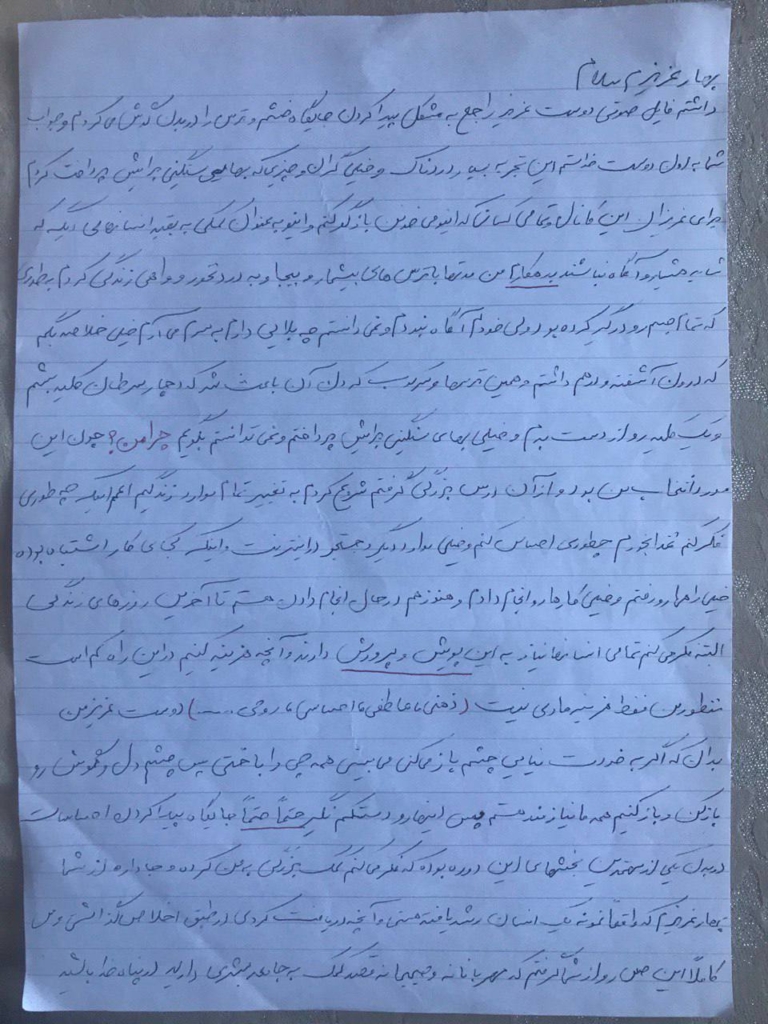 بهار عزیزم سلام
داشتم فایل صوتی دوست عزیز راجع به مشکل پیدا کردن جایگاه خشم و ترس را در بدل گوش می کردم و جواب
شما به اون دوست خواستم این تجربه بسیار دردناک و خیلی گران و چیزیکه بهای سنگینی برایش پرداخت کردم
برای عزیزان این کانال و تمامی کسانی که اینو می خونن بازگو کنم و اینو به عنوان کمکی به بقیه انسانهایی دیگه که
شاید هشیار و آگاه نباشند بدهکارم من مدتها با ترس های بیشمار و بیجا و به درد نخور و واهی زندگی کردم به طوری
که تمام جسم رو درگیر کرده بود ولی خودم آگاه نبودم و نمی دانستم چه بلایی دارم به سرم می آرم خیلی خلاصه بگم
که درون آشفته و درهم داشتم و همین ترسها و سرکوب کردن آن باعث شد که دچار سرطان کلیه بشم
و یک کلیه رو از دست بدم و خیلی بهای سنگینی برایش پرداختم و نمی توانستم بگویم چرا من؟ چون این
مورد انتخاب من بود و از آن درس بزرگی گرفتم شروع کردم به تغییر تمام موارد زندگیم اعم اینکه چه طوری
فکر کنم غذا بخورم چطوری احساس کنم و خیلی موارد دیگر و جستجو در اینترنت و اینکه کجای کار اشتباه بوده
خیلی راهها رو رفتم و خیلی کارها رو انجام دادم و هنوز هم در حال انجام دادن هستم تا آخرین روزهای زندگی
البته فکر می کنم تمامی انسانها نیاز به این پویش و پرورش دارند و آنچه هزینه کنیم در این راه کم است
منظورمن فقط هزینه مادی نیست (ذهنی، عاطفی، احساسی، روحی ......) دوست عزیز من
بدان که اگر به خودت نیایی چشم باز می کنی می بینی همه چی را باختی پس چشم دل و گوش رو
باز کن و باز کنیم همه ما نیازمند هستم پس اینها رو دستکم نگیر حتماً حتماً جایگاه پیدا کردن احساسات
در بدن یکی از مهمترین بخشهای این دوره بوده که فکر می کنم کمک بزرگی به من کرده و جا داره از شما
بهار عزیزم که واقعاً نمونه یک انسان رشد یافته هستی و آنچه دریافت کردی در طبق اخلاص گذاشتی و من
کاملاً این حس رو از شما گرفتم که مهربانانه و صمیمانه قصد کمک به جامعه بشری دارید در پناه خدا باشید